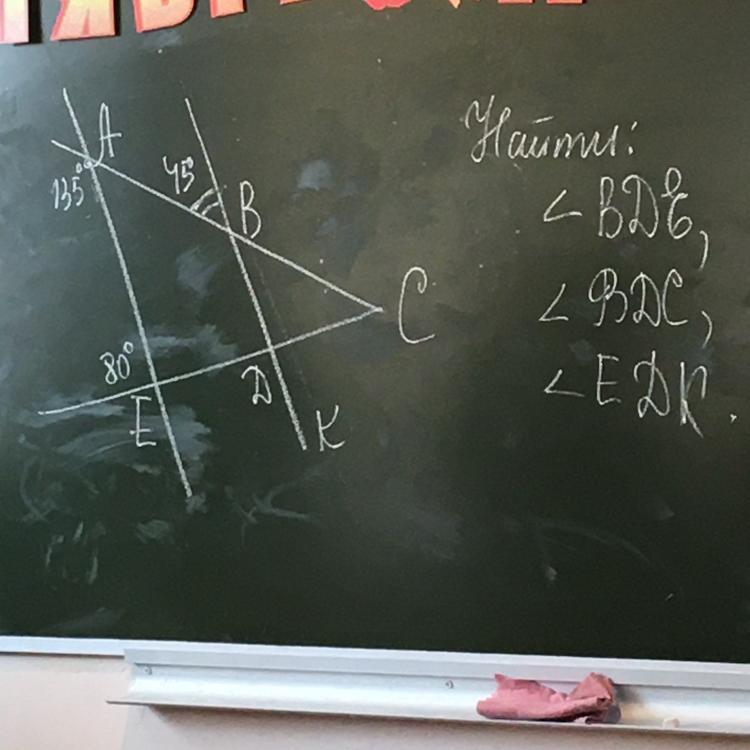 A
135°
45°
B
C
80°
E
D
K
Найти:
∠BDE,
∠BDC,
∠EDK.